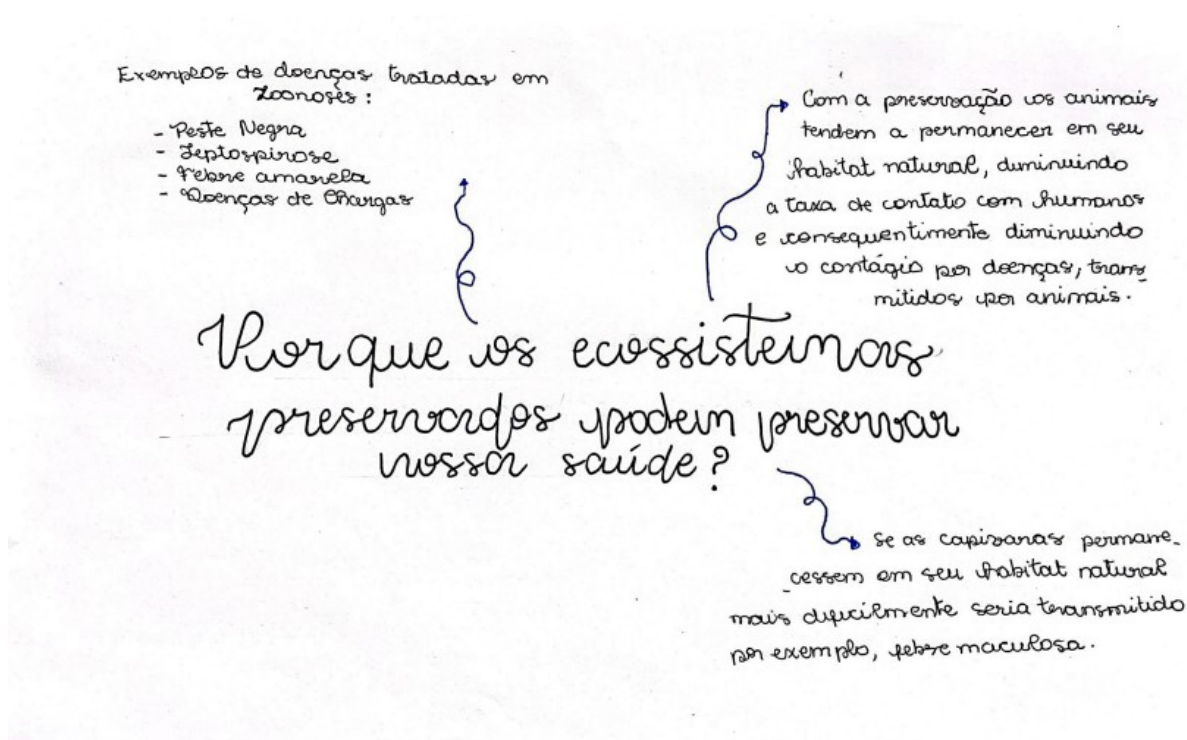 Exemplos de doenças tratadas em
zoonoses:
- Peste Negra
- Leptospirose
- Febre amarela
- Doenças de Chargas
Com a preservação os animais
tendem a permanecer em seu
habitat natural, diminuindo
a taxa de contato com humanos
e consequentimente diminuindo
o contágio por doenças, trans_
mitidos por animais.
Por que os ecossistemas
preservados podem preservar
nossa saúde?
Se as capivaras permane_
cessem em seu habitat natural
mais dificilmente seria transmitido
por exemplo, febre maculosa.